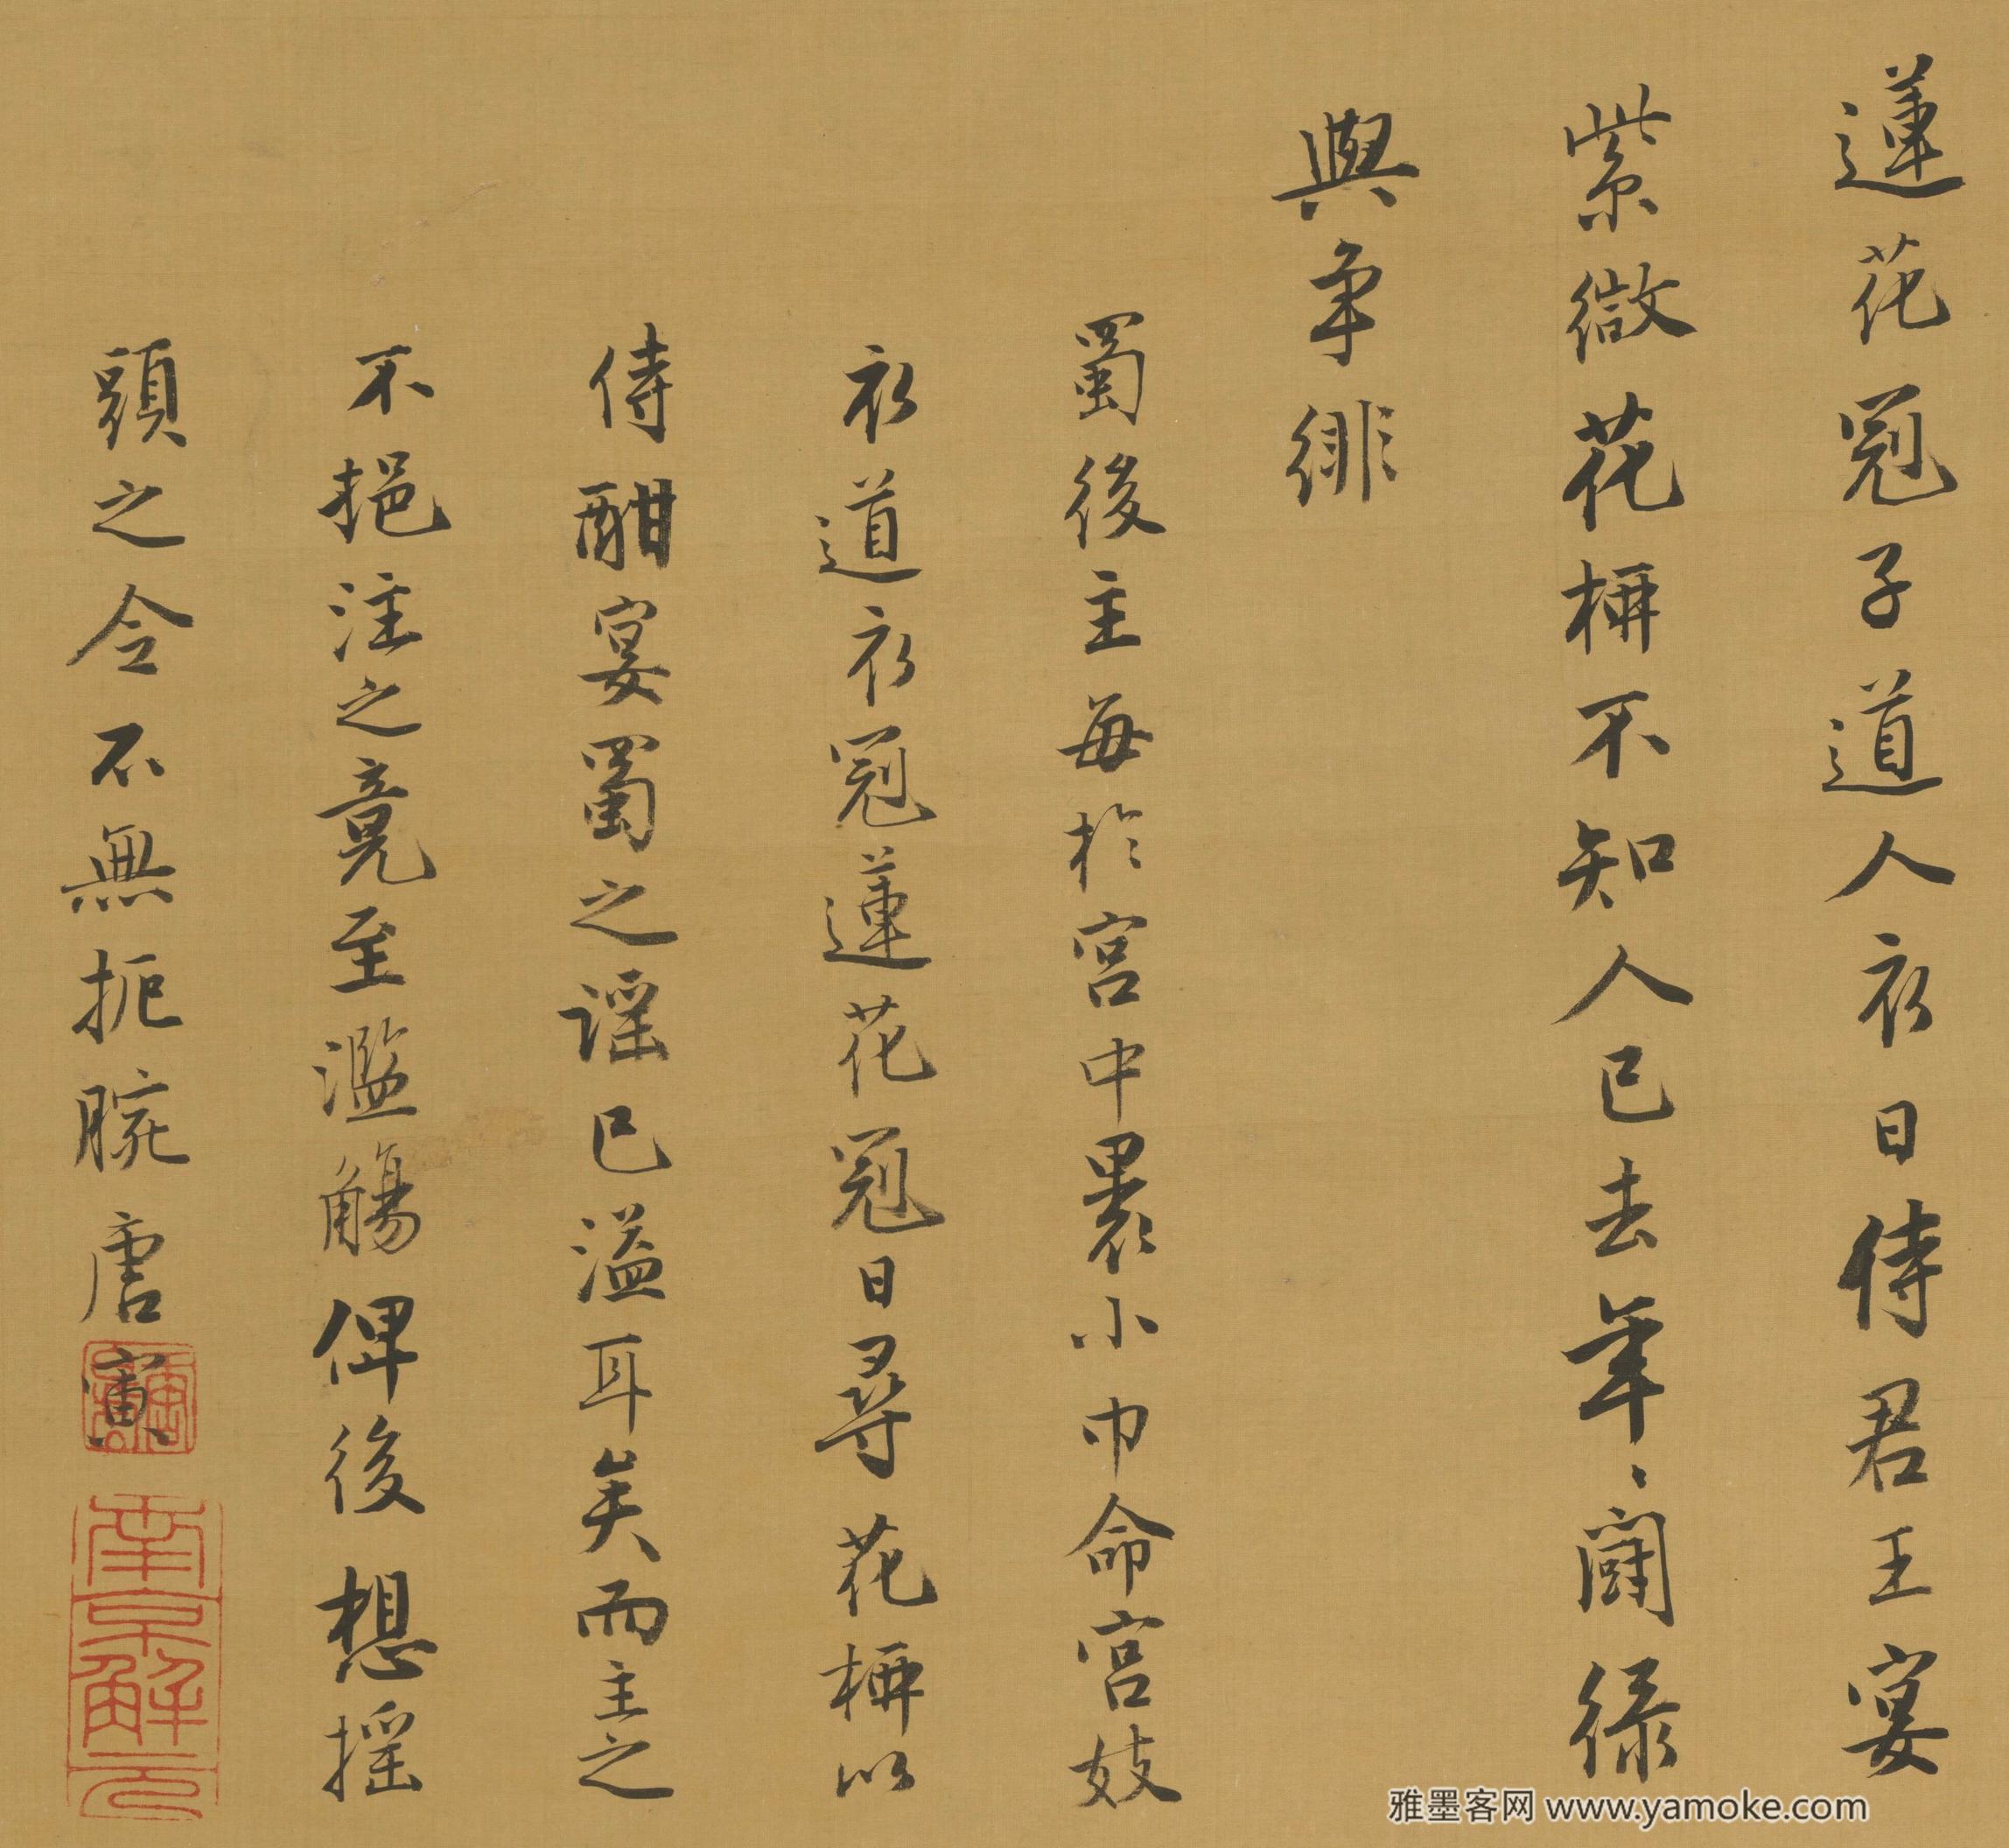 蓮花冠子道人衣日侍君王宴
紫微花柳不知人已去年〻鬪綠
與爭緋
蜀後主每於宮中裹小巾命宮妓
衣道衣冠蓮花冠日尋花柳以
侍酣宴蜀之謠已溢耳矣而主之
不挹注之竟至濫觴俾後想搖
頭之令不無扼腕唐寅
南京解元
雅墨客网 www.yamoke.com